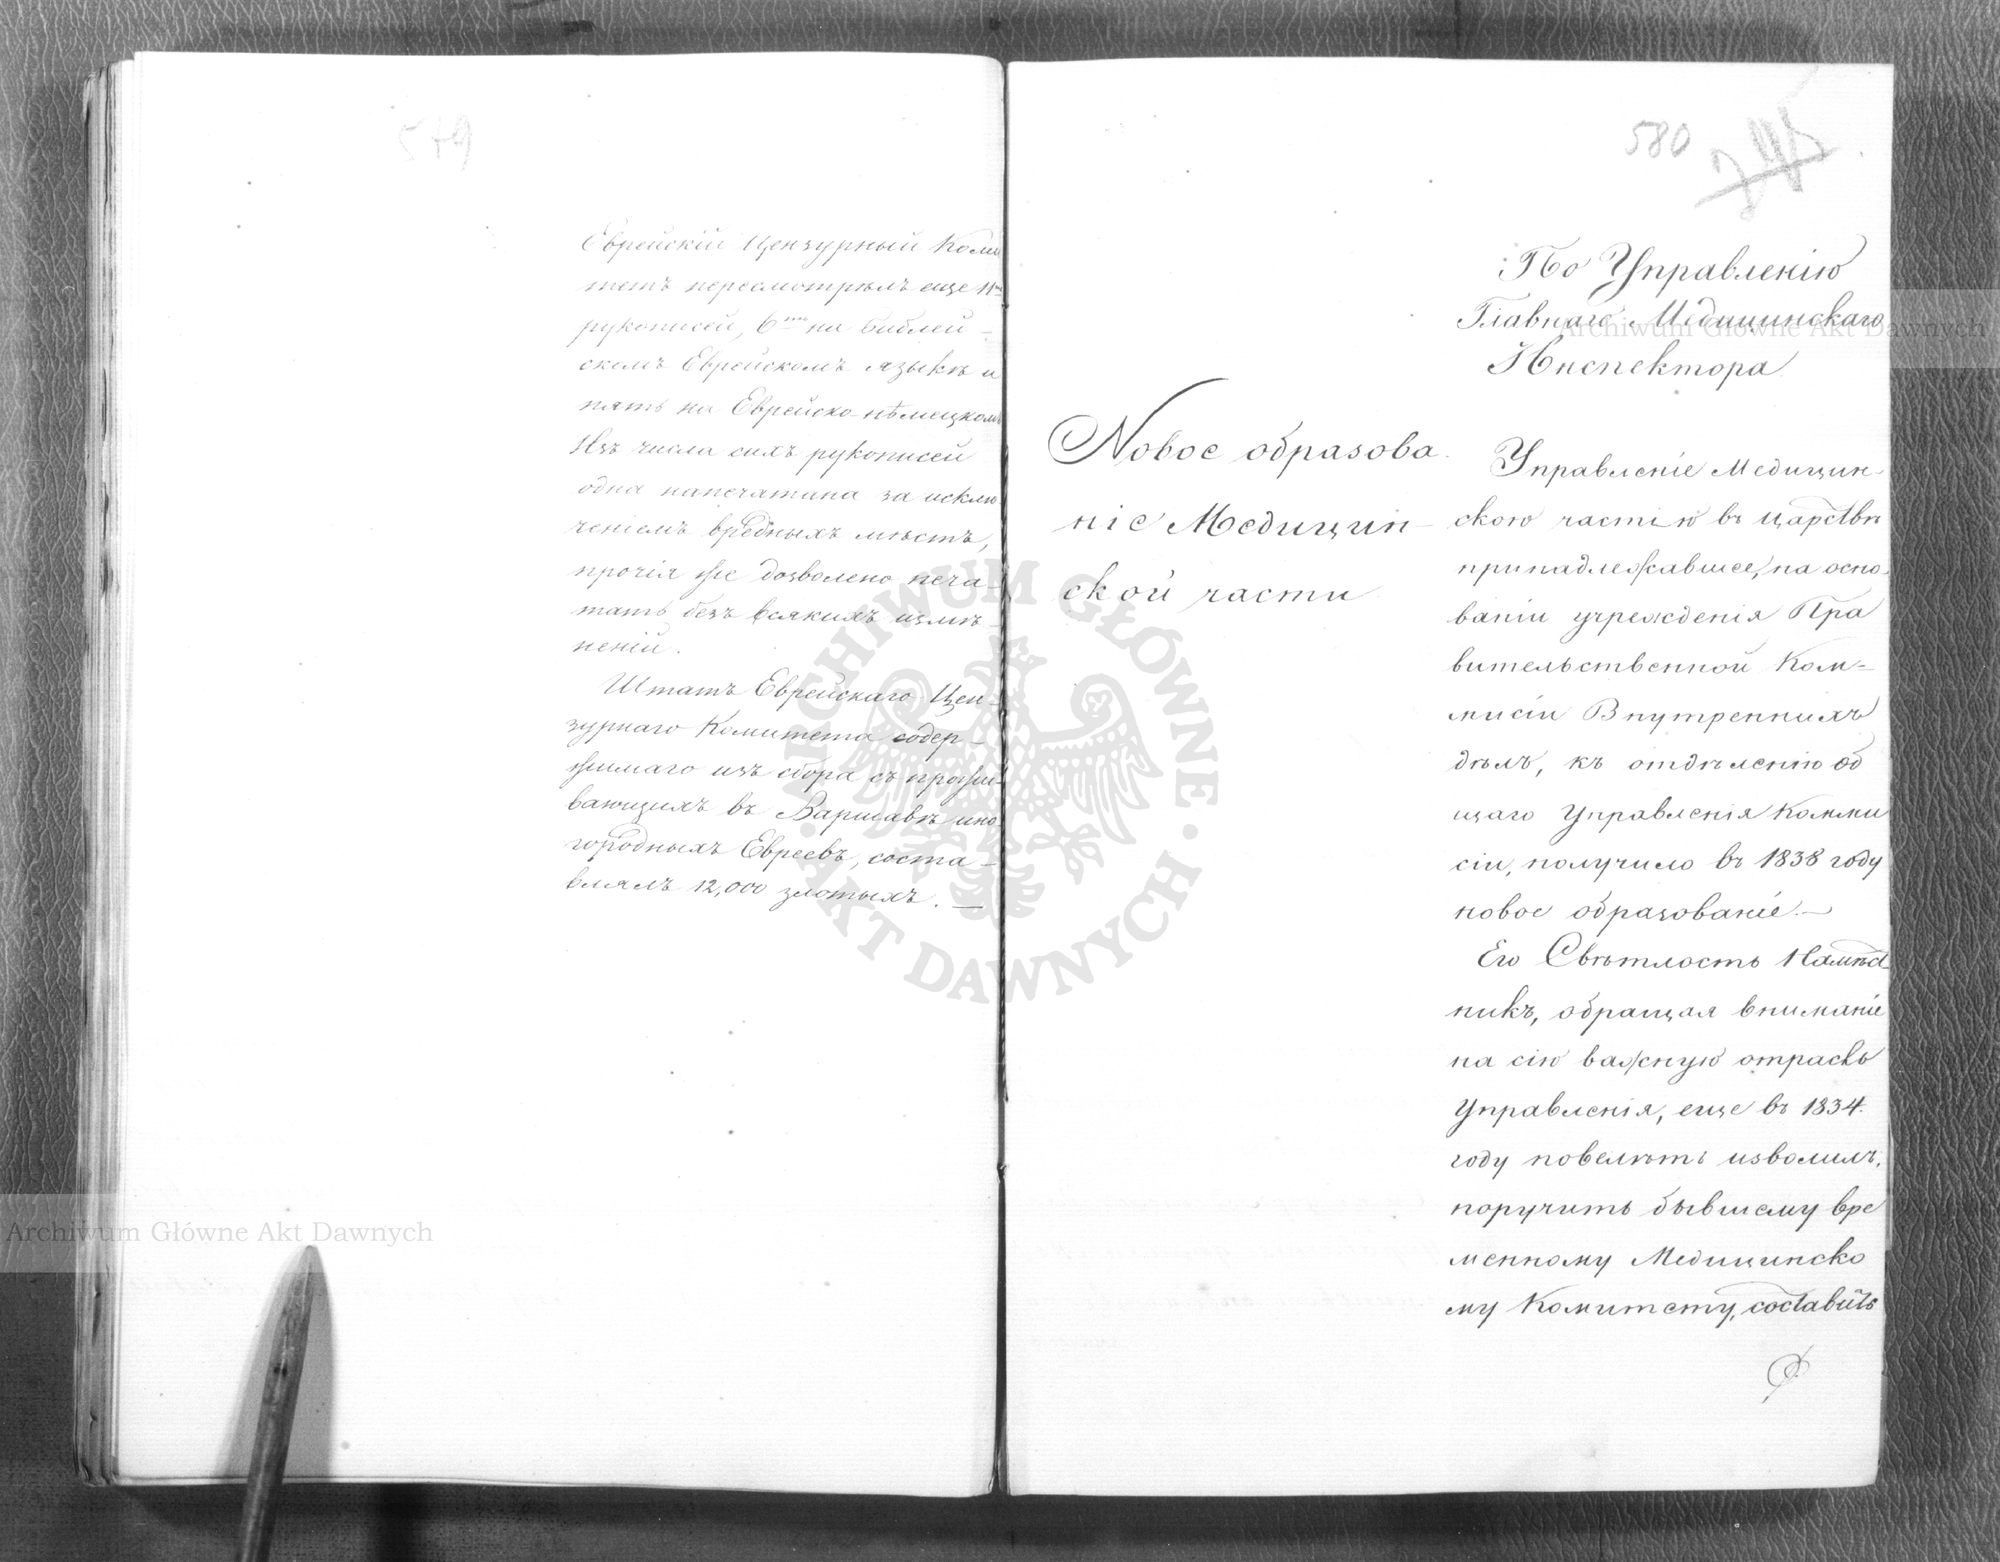 579
Еврейскій Цензурный Коми
тетъ пересмотрѣлъ еще 11ть
рукописей, 6ть на Библей-
скомъ Еврейскомъ языкѣ и
пять на Еврейско-нѣмецкомъ
Изъ числа сихъ рукописей
одна напечатана за исклю
ченіемъ вредныхъ мѣстъ,
прочія же дозволено печа-
тать безъ всякихъ измѣ-
неній.
Штатъ Еврейскаго Цен-
зурнаго Комитета содер-
жимаго изъ сбора съ прожи-
вающихъ въ Варшавѣ ино
городныхъ Евреевъ, соста-
влялъ 12,000 злотыхъ. —
580
245
По Управленію
Главнаго Медицинскаго
Инспектора
Новое образова
ніе Медицин-
ской части
Управленіе Медицин-
скою частію въ Царствѣ
принадлежавшее, на осно
ваніи учрежденія Пра
вительственной Ком-
мисіи Внутреннихъ
дѣлъ, къ отдѣленію об
щаго Управленія Комми
сіи, получило въ 1838 году
новое образованіе. —
Его Свѣтлость Намѣст
никъ, обращая вниманіе
на сію важную отрасль
Управленія, еще въ 1834.
году повелѣть изволилъ,
поручить бывшему вре
менному Медицинско
му Комитету, составить
Archiwum Główne Akt Dawnych
Archiwum Główne Akt Dawnych
ARCHIWUM GŁÓWNE · AKT DAWNYCH ·